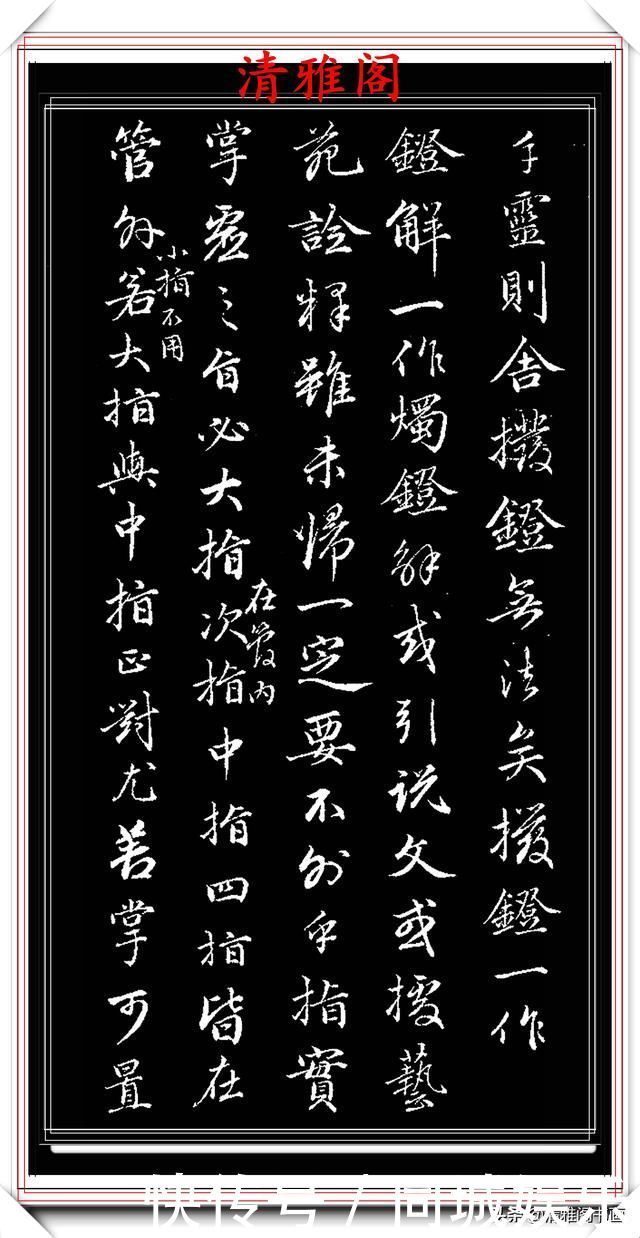 清雅阁
手靈則舍撥鐙無法矣撥鐙一作
鐙解一作燭鐙解或引说文或據藝
苑詮釋雖未歸一定要不外乎指實
掌虛之旨必大指次指中指四指皆在
在管内
管外若大指與中指正對尤善掌可置
小指不用
快传号/同城娱乐
头条@清雅阁书画